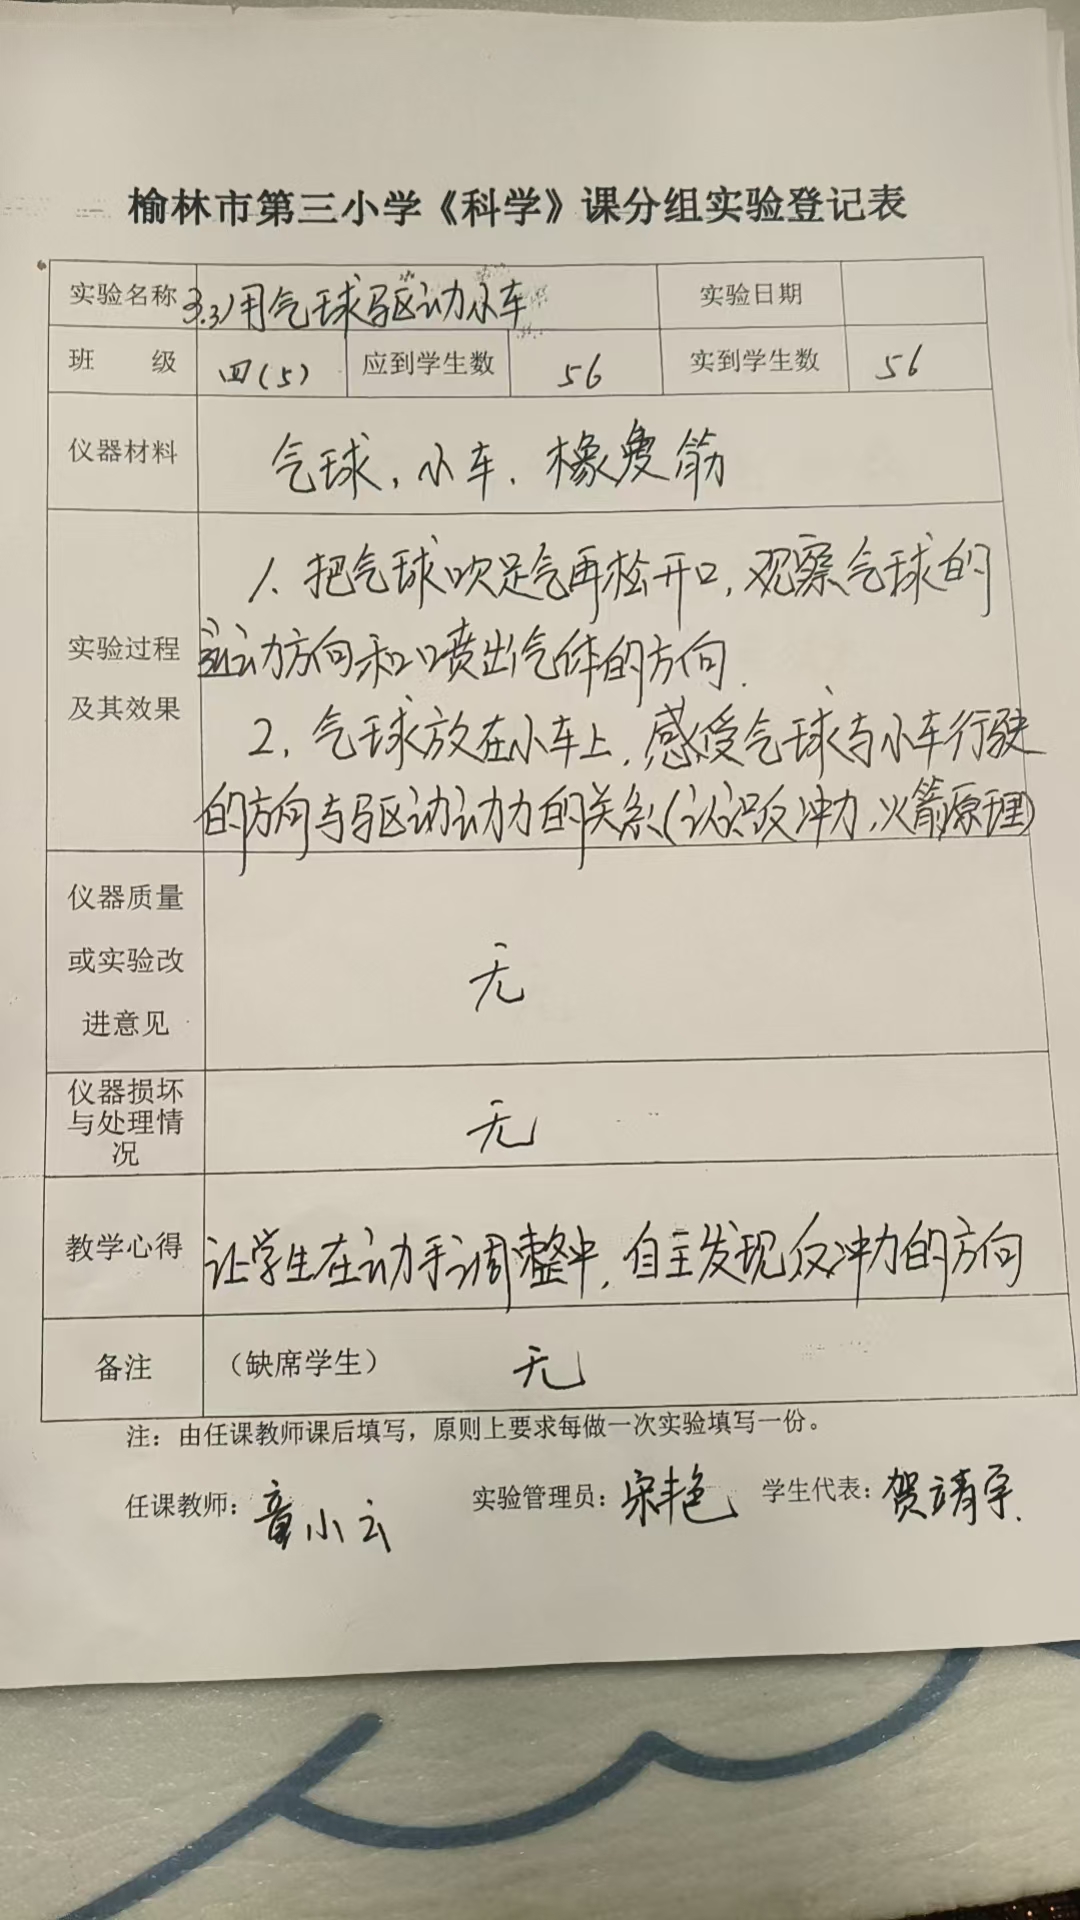 榆林市第三小学《科学》课分组实验登记表
实验名称 3.3用气球驱动小车 实验日期
班 级 四(5) 应到学生数 56 实到学生数 56
仪器材料 气球，小车，橡皮筋
1、把气球吹足气再松开口，观察气球的
运动方向和口喷出气体的方向.
实验过程
及其效果
2，气球放在小车上，感受气球与小车行驶
的方向与驱动动力的关系(认识反冲力，火箭原理)
仪器质量
或实验改
进意见
无
仪器损坏
与处理情
况
无
教学心得 让学生在动手调整中，自主发现反冲力的方向
备注 （缺席学生） 无
注：由任课教师课后填写，原则上要求每做一次实验填写一份。
任课教师：童小云 实验管理员：宋艳 学生代表：贺靖